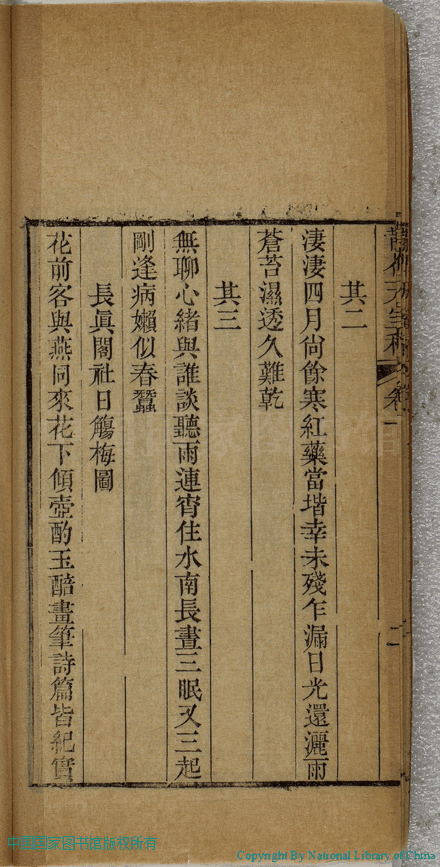 其二
淒淒四月尙餘寒紅藥當堦幸未殘乍漏日光還灑雨
蒼苔濕透久難乾
其三
無聊心緒與誰談聽雨連宵住水南長晝三眠又三起
剛逢病嬾似春蠶
長眞閣社日觴梅圖
花前客與燕同來花下傾壺酌玉醅畫筆詩篇皆紀實
中国国家图书馆版权所有
Copyright By National Library of China